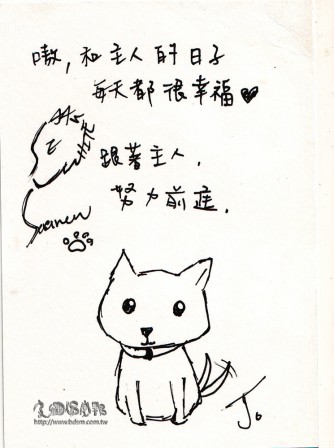 嗷，和主人的日子
每天都很幸福♥
跟著主人，
努力前進。
Jo
http://www.bdsm.com.tw